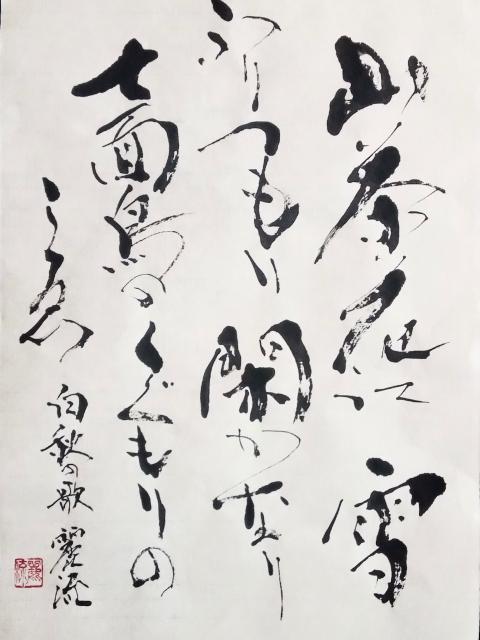 山茶花に雪
ふりつもり閑かなり
七面鳥のくぐもりの
こゑ
白秋の歌 麗流